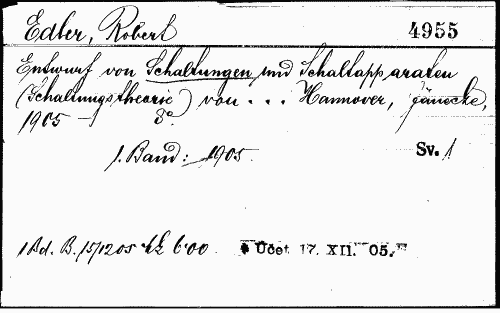 Edler, Robert 4955
Entwurf von Schaltungen und Schaltapparaten
(Schaltungstheorie) von ... Hannover, Jänecke,
1905 - 8°.
1. Band: 1905. Sv. 1
1 Bd. B. 15/12 05 6·00 Účet 17. XII. 05.